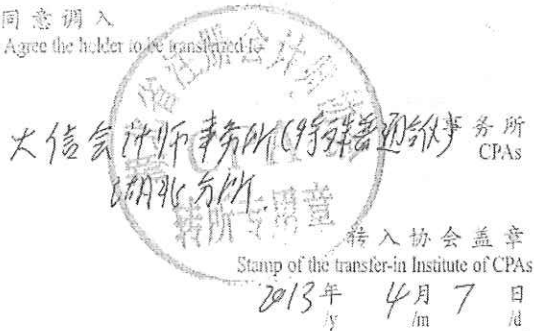 同意调入
Agree the holder to be transferred to
大信会计师事务所(特殊普通合伙)事务所
CPAs
湖北分所
转所专用章
转入协会盖章
Stamp of the transfer-in Institute of CPAs
2013年 4月 7日
/y /m /d